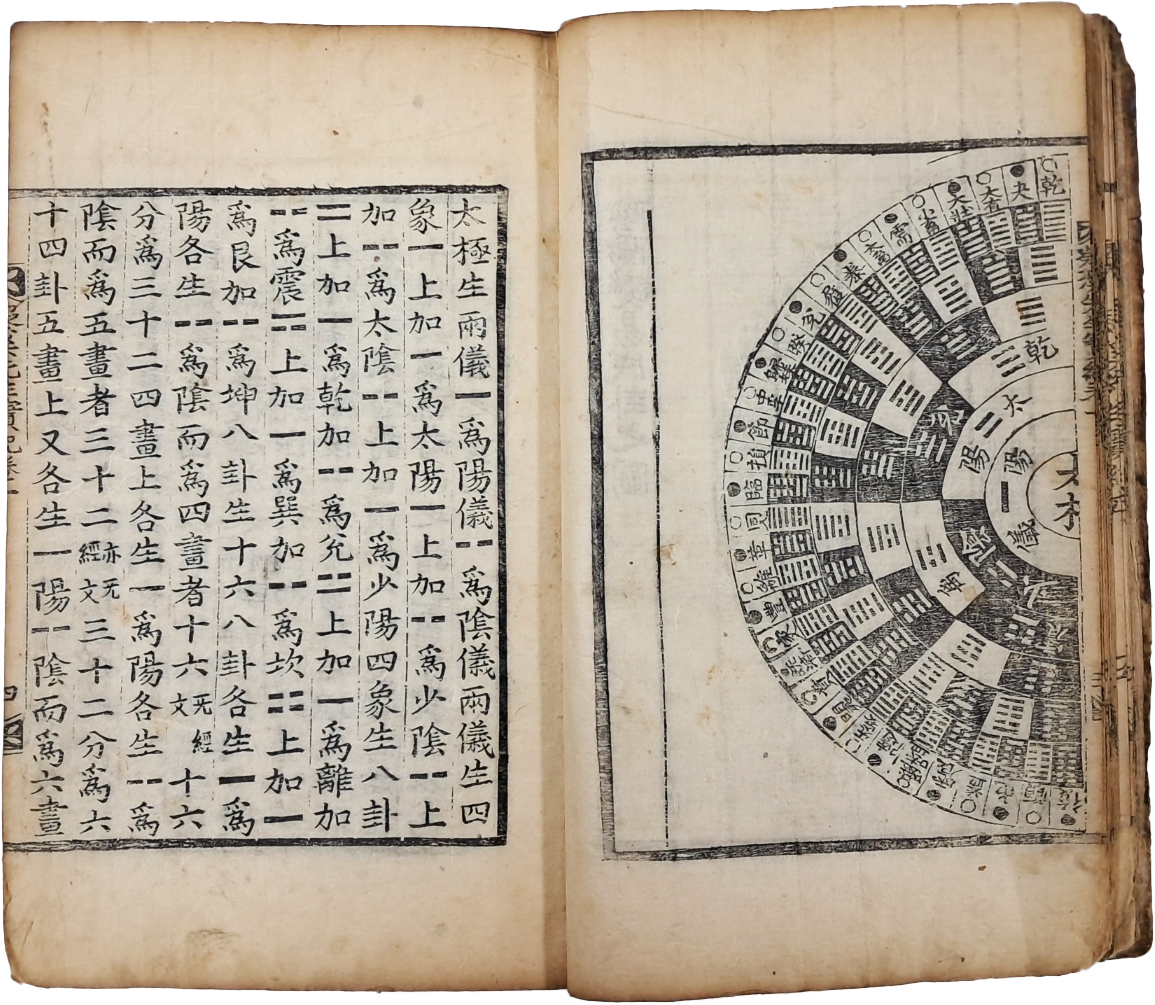 乾
夬
大有
大壯
小畜
需
大畜
泰
履
兌
睽
歸
中
節
損
臨
同
革
離
豐
乾
太
陽
陽
儀
少
陰
離
太極
太極生兩儀⚊爲陽儀⚋爲陰儀兩儀生四
象⚊上加⚊爲太陽⚊上加⚋爲少陰⚋上
加⚋爲太陰⚋上加⚊爲少陽四象生八卦
⚌上加⚊爲乾加⚋爲兌⚍上加⚊爲離加
⚋爲震⚎上加⚊爲巽加⚋爲坎⚏上加⚊
爲艮加⚋爲坤八卦生十六八卦各生⚊爲
陽各生⚋爲陰而爲四畫者十六无經文十六
分爲三十二四畫上各生⚊爲陽各生⚋爲
陰而爲五畫者三十二亦无經文三十二分爲六
十四卦五畫上又各生⚊陽⚋陰而爲六畫